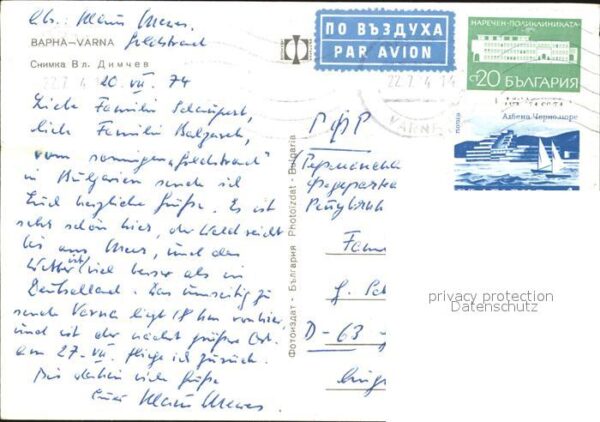 Abs. Klaus Mewes
ВАРНА-VARNA Goldstrand
Снимка Вл. Димчев
20. VII. 74
Liebe Familie
liebe Familie
vom sonnigen „Goldstrand"
in Bulgarien sende ich
Euch herzliche Grüße. Es ist
sehr schön hier, der Wald reicht
bis ans Meer, und das
Wetter ist viel besser als in
Deutschland. Das umseitig zu
sehende Varna liegt 18 km von hier
und ist der nächst größere Ort.
am 27. VII. fliege ich zurück.
Bis dahin viele Grüße
Euer Klaus Mewes
Фотоиздат - България Photoizdat - Bulgaria
ПО ВЪЗДУХА
PAR AVION
НАРЕЧЕН-ПОЛИКЛИНИКАТА
СТ 20 БЪЛГАРИЯ
22.7.4 14
VARNA
поща
Албена Черноморе
РФР
Германска
Федерачка
Републик
Fam
G. Sch
D-63
privacy protection
Datenschutz